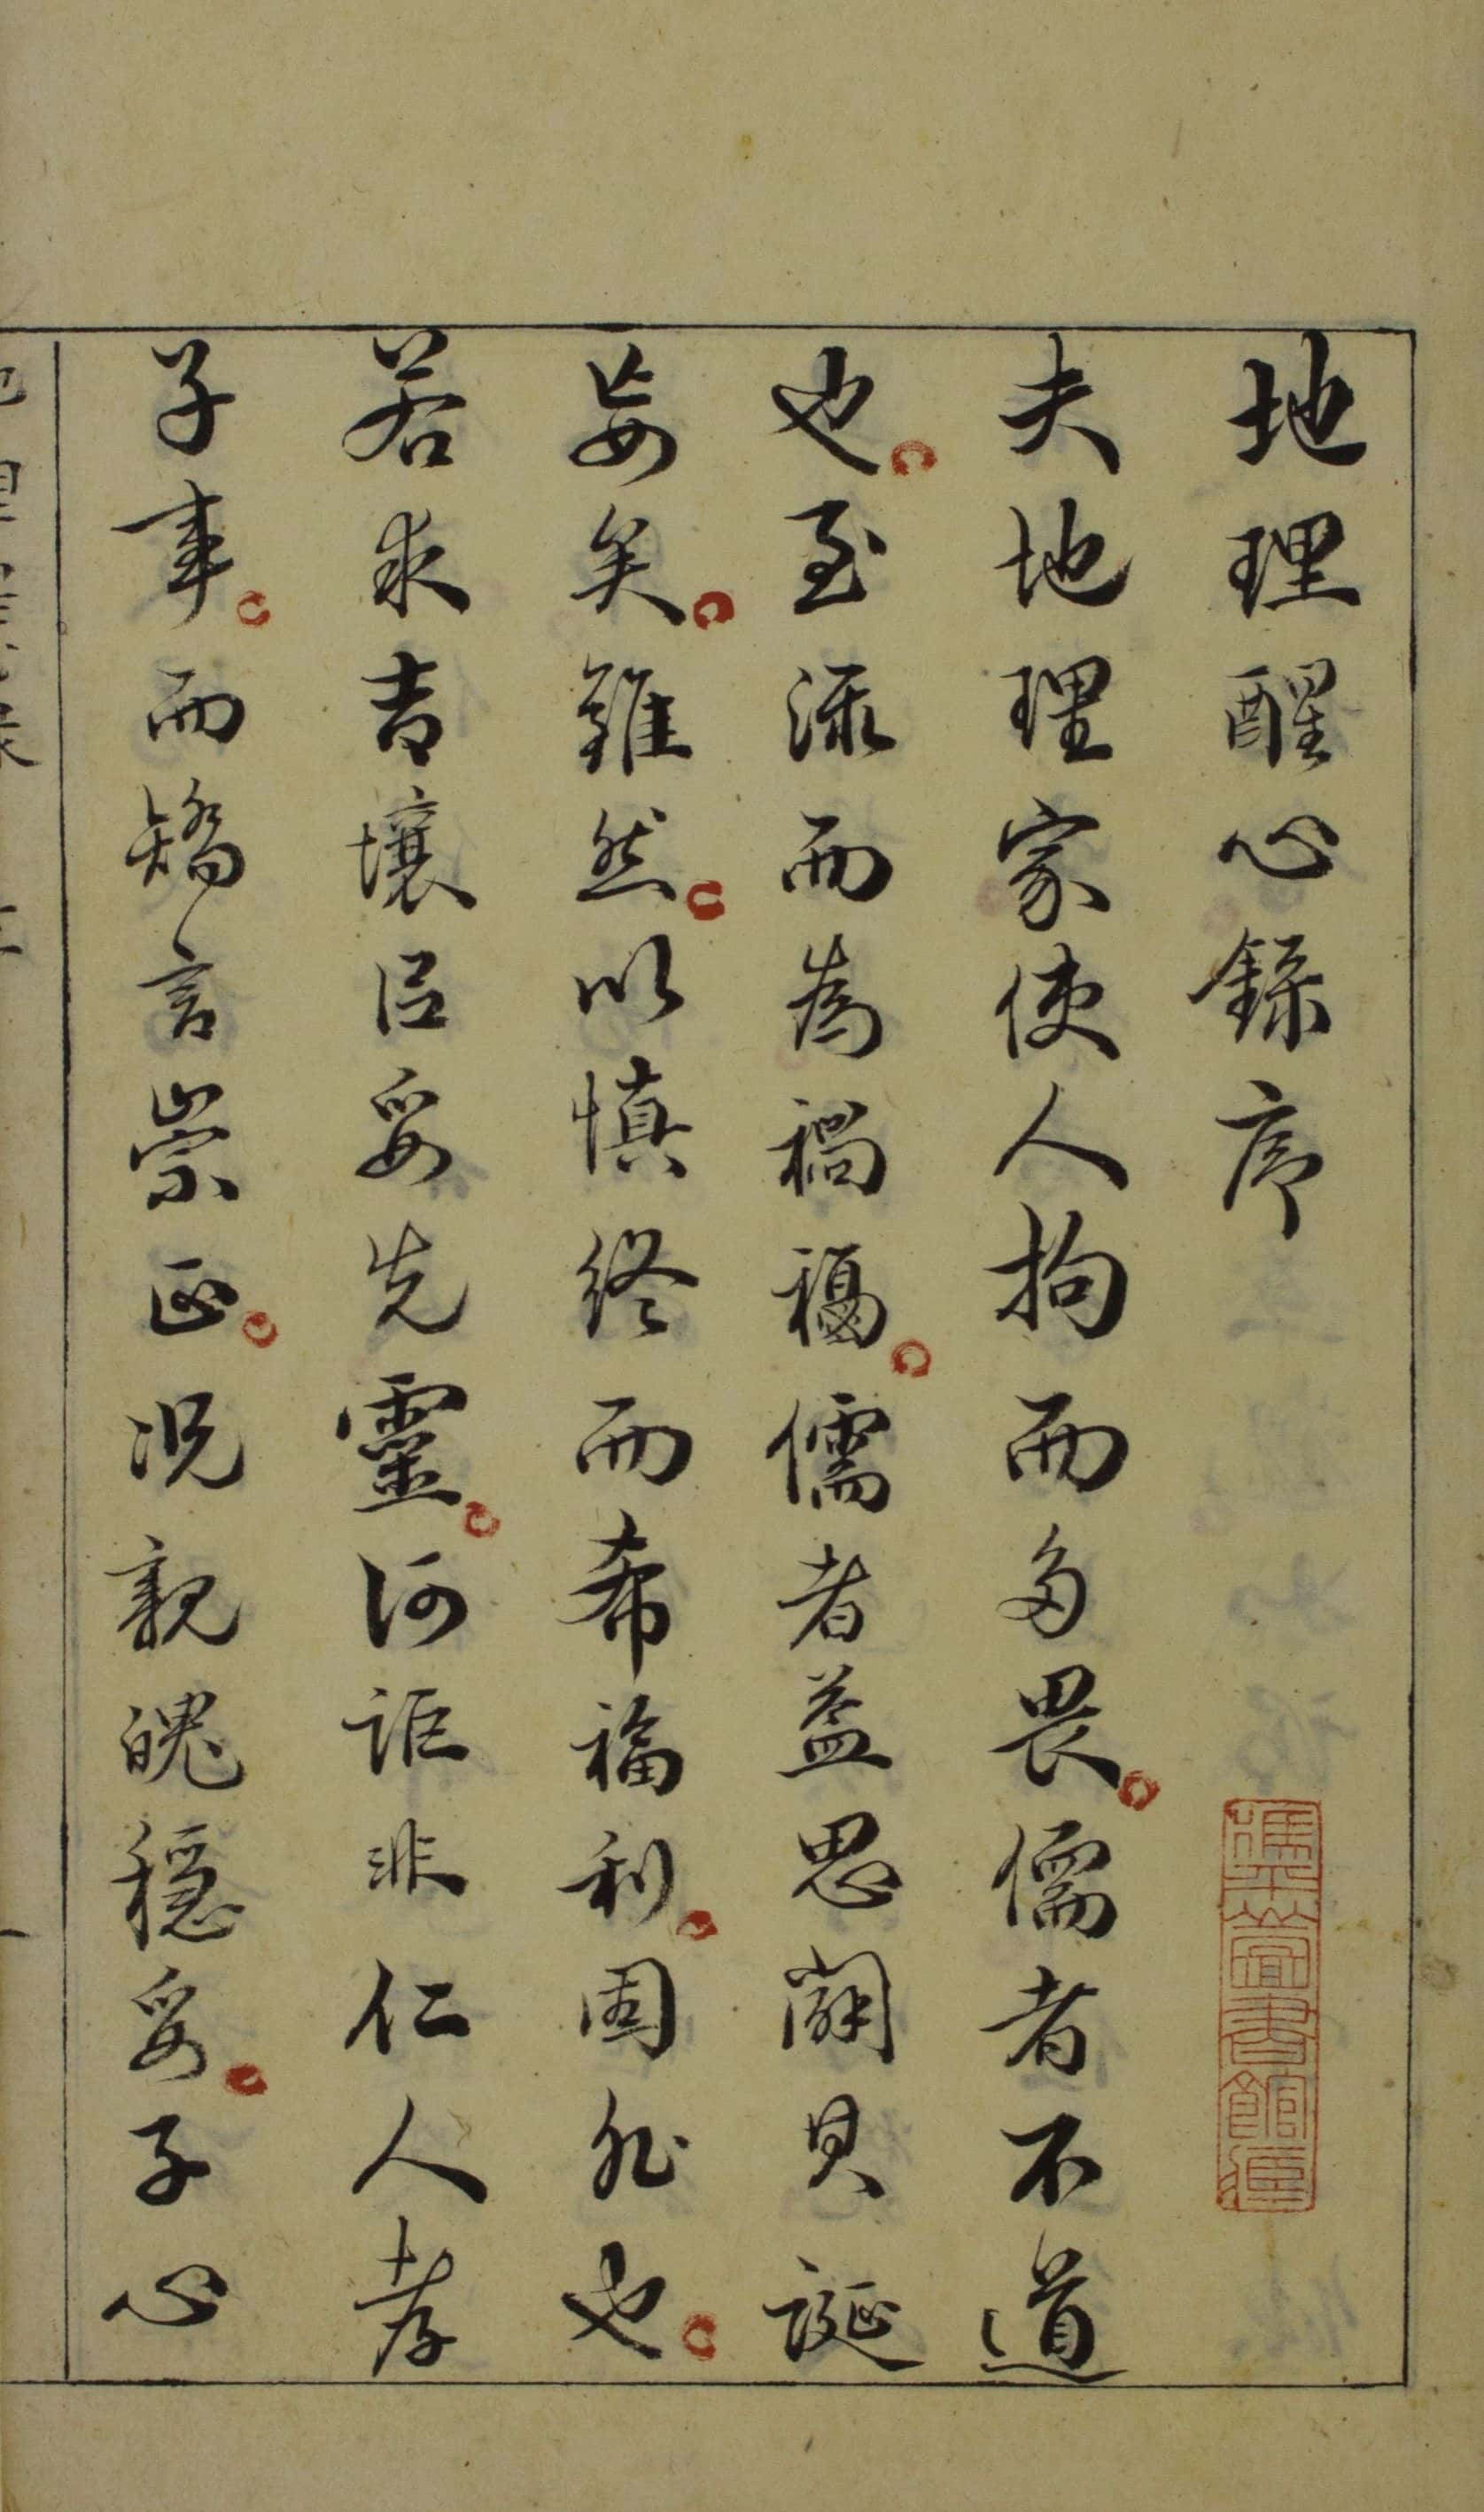 地理醒心錄序
夫地理家使人拘而多畏儒者不道
也至流而為禍福儒者益思闢其誕
妄矣雖然以慎終而希福利固非也
若求吉壤以妥先靈何詎非仁人孝
子事而矯言崇正況親魄穩妥子心